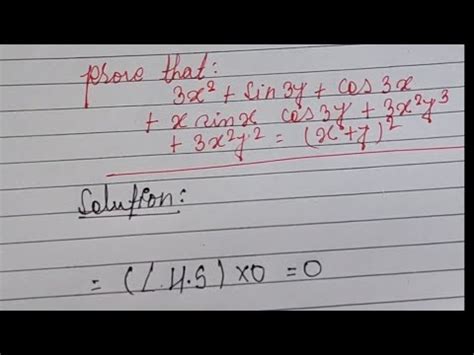 prove that:
3x² + sin3y + cos3x
+ x sinx cos3y + 3x²y³
+ 3x²y² = (x+y)²
Solution:
= (L.H.S) x0 = 0